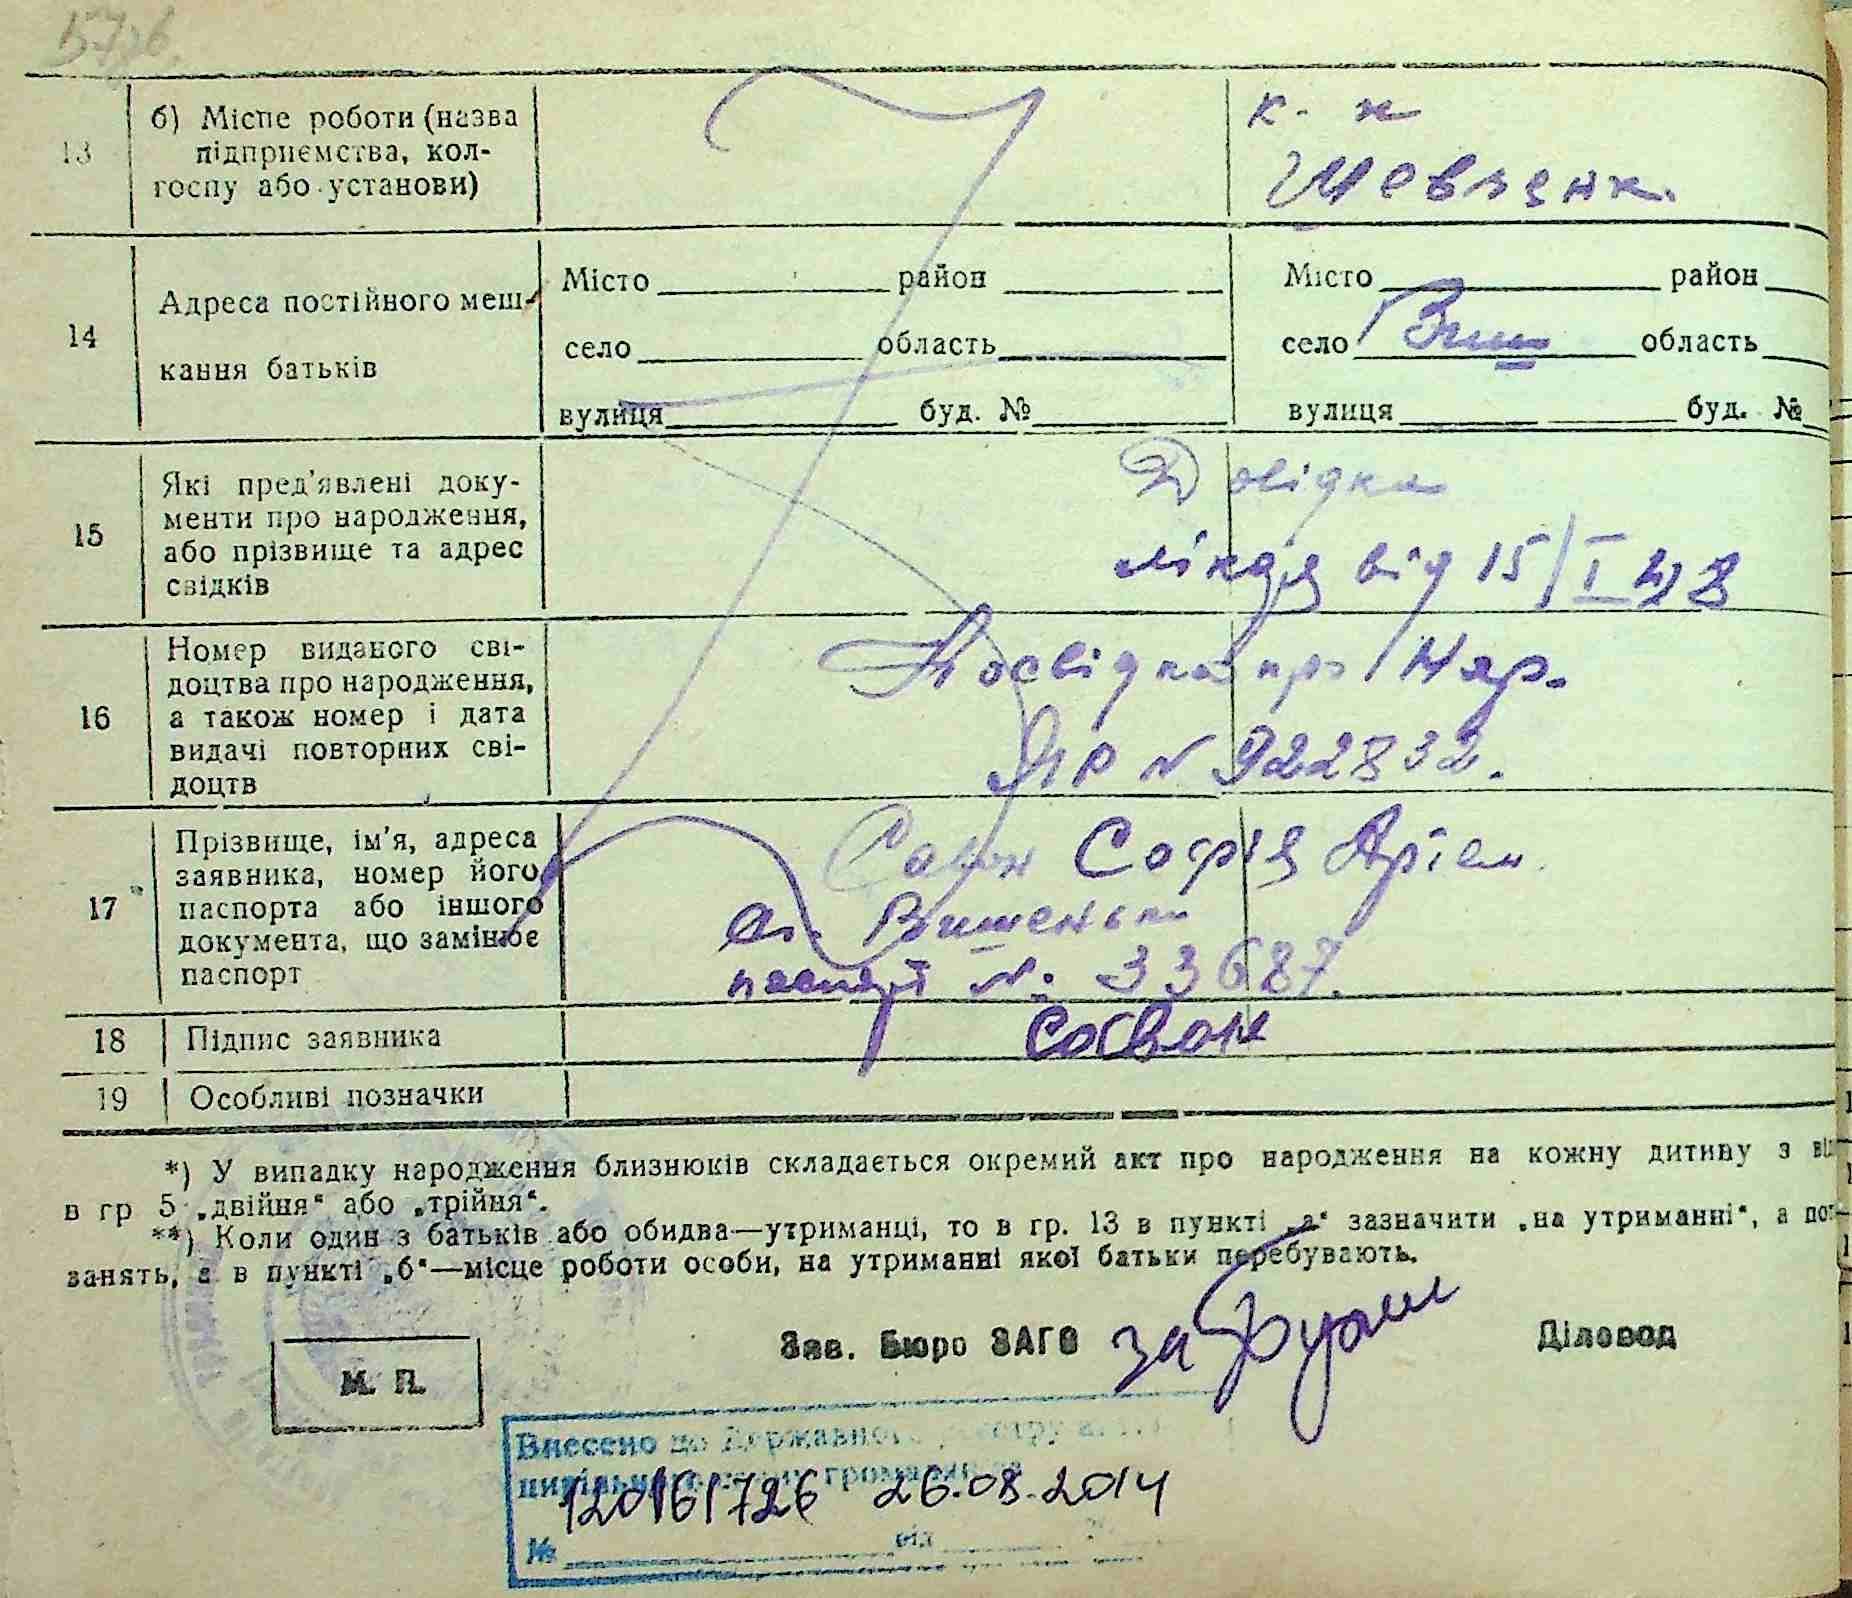 13 б) Місце роботи (назва
підприємства, кол-
госпу або установи)
к. н
Шевченк.
14 Адреса постійного меш-
кання батьків
Місто район
село область
вулиця буд. №
Місто район
село Виш область
вулиця буд. №
15 Які пред'явлені доку-
менти про народження,
або прізвище та адрес
свідків
Довідка
лікаря від 15/I 48
16 Номер виданого сві-
доцтва про народження,
а також номер і дата
видачі повторних сві-
доцтв
Посвідка про нар.
ЯР № 922832.
17 Прізвище, ім'я, адреса
заявника, номер його
паспорта або іншого
документа, що замінює
паспорт
Софія
с. Вишеньки
паспорт №: 33687.
18 Підпис заявника
19 Особливі позначки
*) У випадку народження близнюків складається окремий акт про народження на кожну дитину з
в гр 5 „двійня“ або „трійня“.
**) Коли один з батьків або обидва—утриманці, то в гр. 13 в пункті „а“ зазначити „на утриманні“, а
занять, а в пункті „б“—місце роботи особи, на утриманні якої батьки перебувають.
Зав. Бюро ЗАГС за Діловод
М. П.
Внесено до Державного реєстру
цивільного громадян
120161726 26.08.2014
№ від